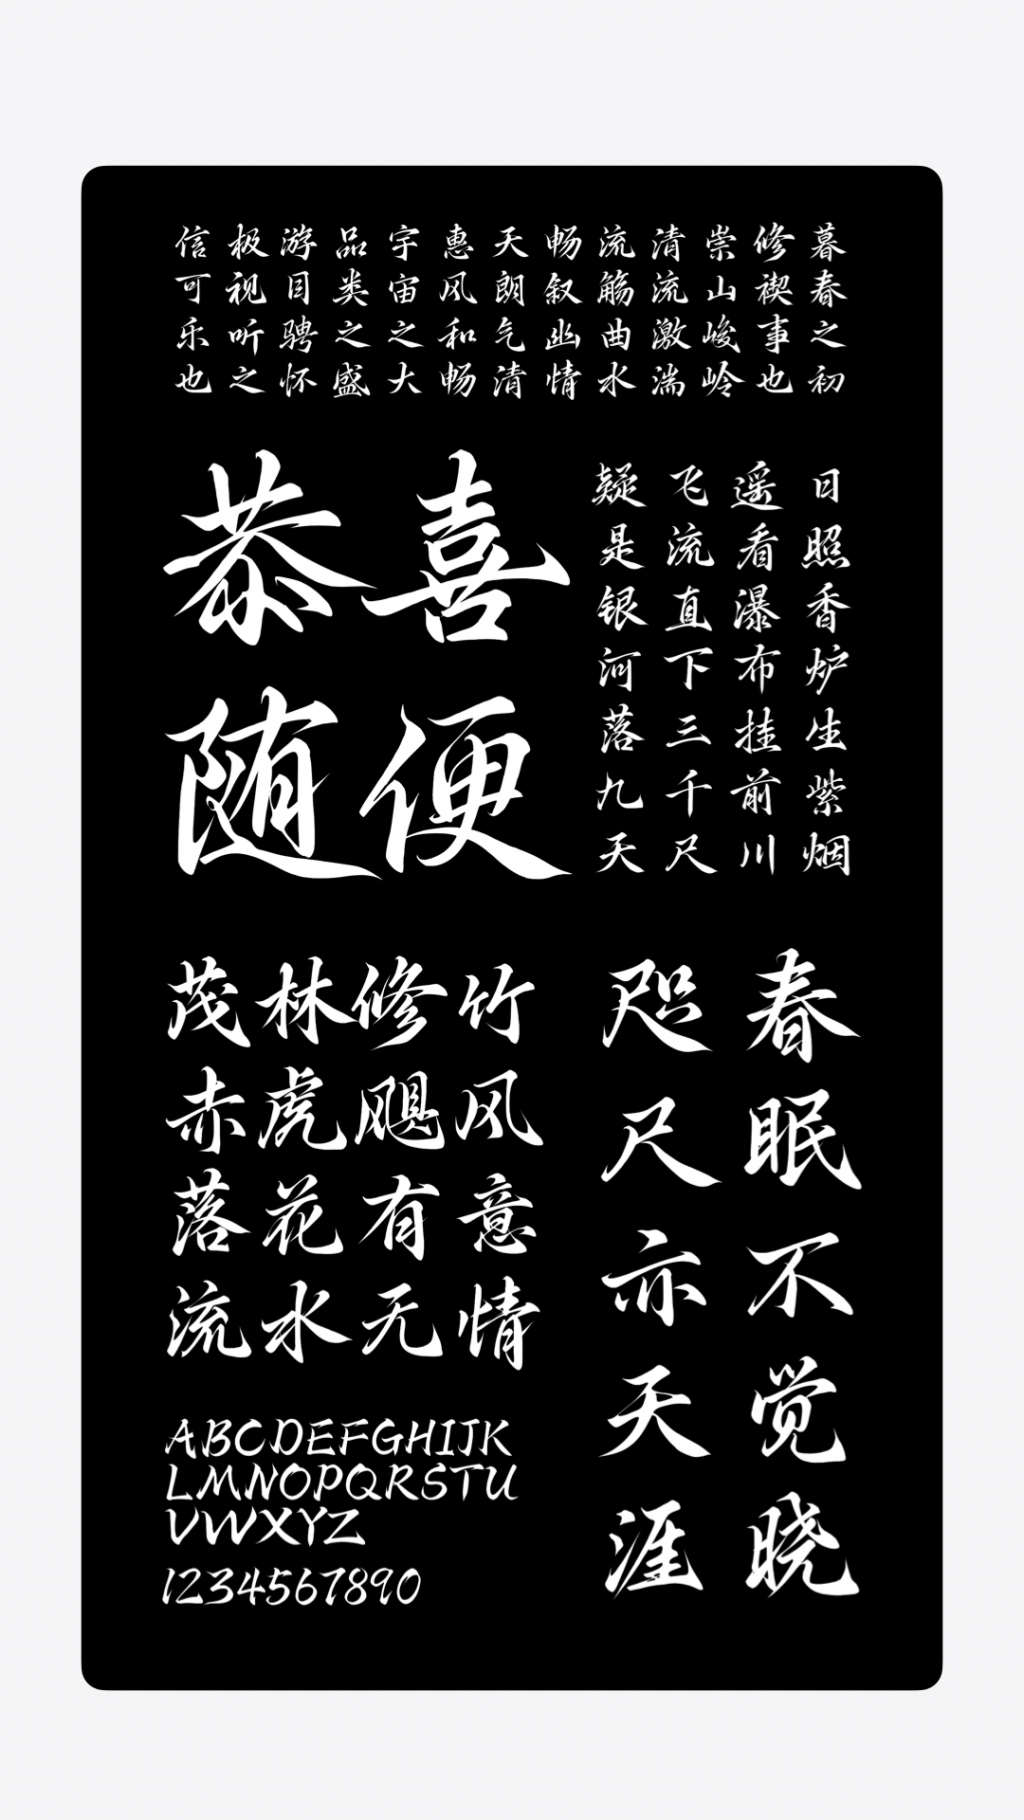 暮春之初
修禊事也
崇山峻岭
清流激湍
流觞曲水
畅叙幽情
天朗气清
惠风和畅
宇宙之大
品类之盛
游目骋怀
极视听之
信可乐也
恭喜
随便
日照香炉生紫烟
遥看瀑布挂前川
飞流直下三千尺
疑是银河落九天
茂林修竹
赤虎飓风
落花有意
流水无情
春眠不觉晓
咫尺亦天涯
ABCDEFGHIJK
LMNOPQRSTU
VWXYZ
1234567890